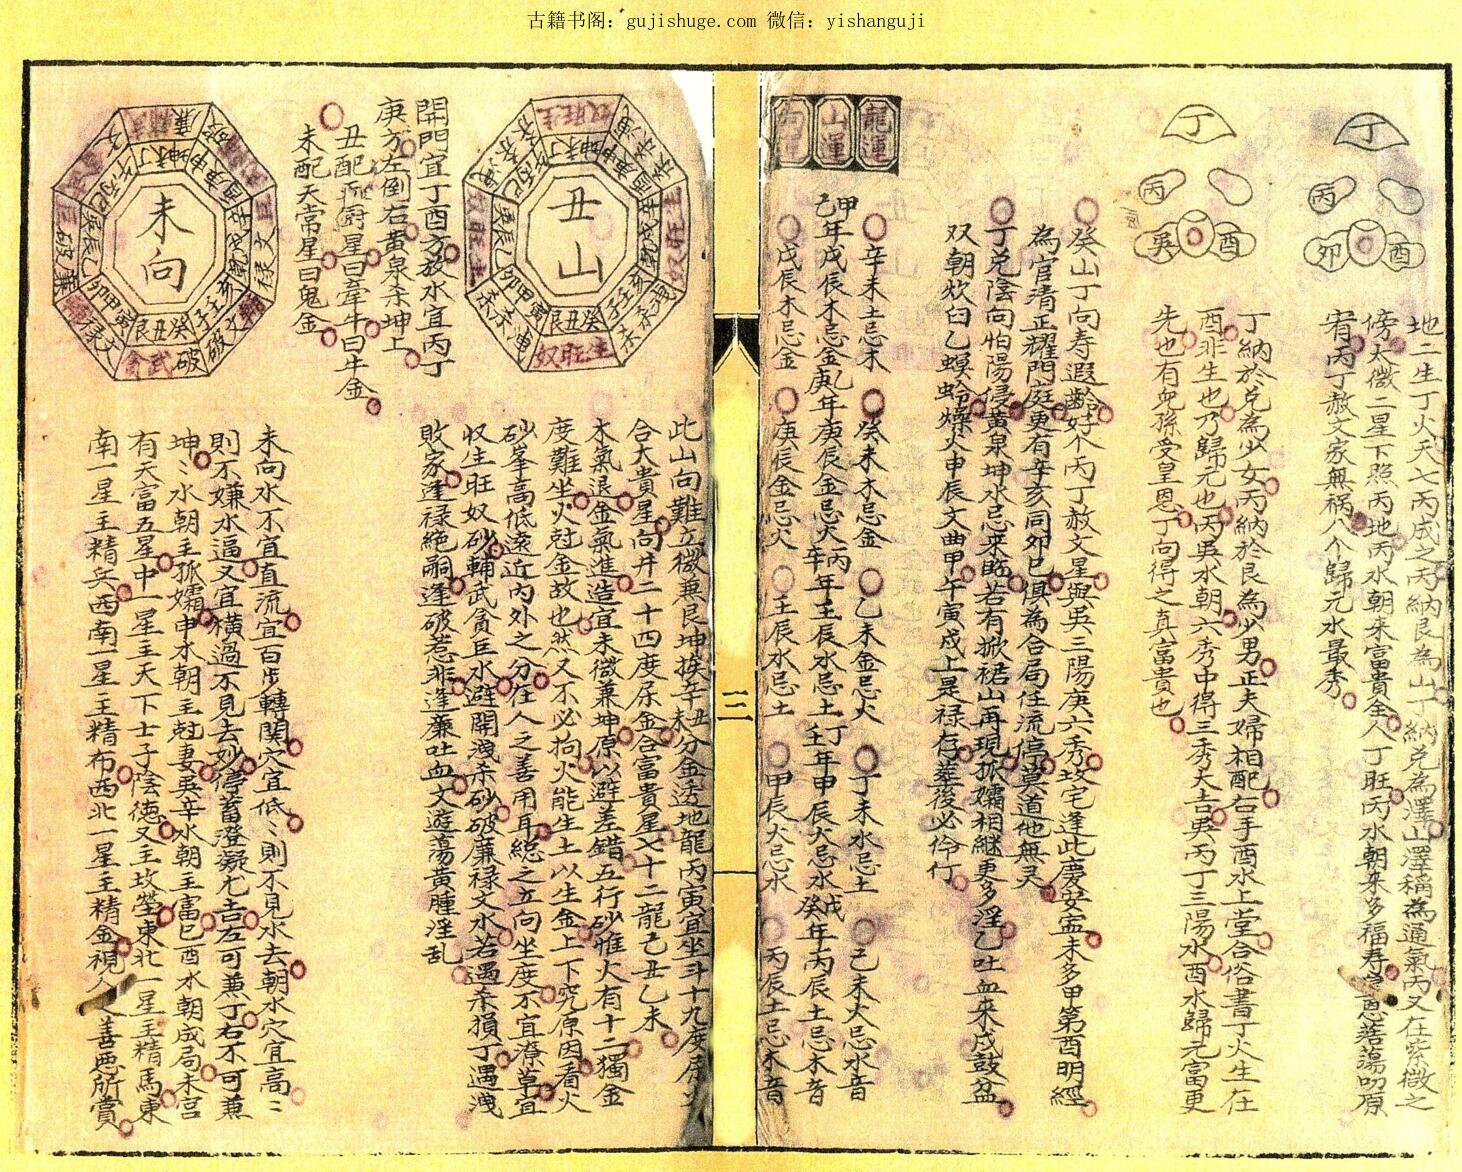 古籍书阁：gujishuge.com 微信：yishanguji
丁
丙
卯
酉
地二生丁火天七丙成之丙納艮為山丁納兌為澤山澤稱為通氣丙又在紫微之
傍太微二星下照丙地丙水朝來富貴全人丁旺丙水朝來多福壽
宥丙丁赦文家無禍八个歸元水最秀
丁
丙
巽
酉
丁納於兌為少女丙納於艮為少男正夫婦相配右手酉水上堂合俗書丁火生在
酉非生也乃歸元也丙巽水朝六秀中得三秀大吉巽丙丁三陽水酉水歸元富更
先也有兒孫受皇恩丁向得之真富貴也
癸山丁向壽遐齡好个丙丁赦文星與巽三陽庚六秀坟宅逢此慶安盈未多甲第酉明經
為官清正耀門庭更有辛亥同卯巳俱為合局任流停莫道他無灵
丁兌陰向怕陽侵黃泉坤水忌來臨若有掀裙山再現孤孀相繼更多淫乙吐血來戌鼓盆
双朝炊臼乙螟蛉燥火申辰文曲甲午寅戌上是祿存葬後必伶仃
龍運
山運
向運
辛未土忌木
癸未木忌金
乙未金忌火
丁未水忌土
己未火忌水音
甲己年戊辰木忌金
乙庚年庚辰金忌火
丙辛年壬辰水忌土
丁壬年甲辰火忌水
戊癸年丙辰土忌木音
戊辰木忌金
庚辰金忌火
壬辰水忌土
甲辰火忌水
丙辰土忌木音
三
丑山
開門宜丁酉方放水宜丙丁
庚方左倒右黃泉杀坤上
丑配厨星曰牽牛曰牛金
未配天常星曰鬼金
未向
此山向難立微兼艮坤挨辛丑辛未分金透地龍丙寅宜坐斗十九度
合大貴星向井二十四度㞐金合富貴星七十二龍己丑乙未
木氣退金氣進造宜未微兼坤原以避差錯五行砂惟火有十二獨金
度難坐火尅金故也然又不必拘火能生土以生金上下究原因看火
砂峯高低遠近內外之分在人之善用耳總之立向坐度不宜潦草宜
收生旺奴砂輔武貪巨水避開洩杀砂破廉祿文水若遇杀損丁遇洩
敗家逢祿絕嗣逢破惹非逢廉吐血文遊蕩黃腫淫乱
未向水不宜直流宜百步轉関穴宜低〻則不見水去朝水穴宜高〻
則不嫌水逼又宜橫過不見去妙停蓄澄凝尤吉左可兼丁右不可兼
坤〻水朝主孤孀申水朝主尅妻巽辛水朝主富巳酉水朝成局未宫
有天富五星中一星主天下士子陰德又主坟塋東北一星主精馬東
南一星主精兵西南一星主精布西北一星主精金視人之善惡所賞